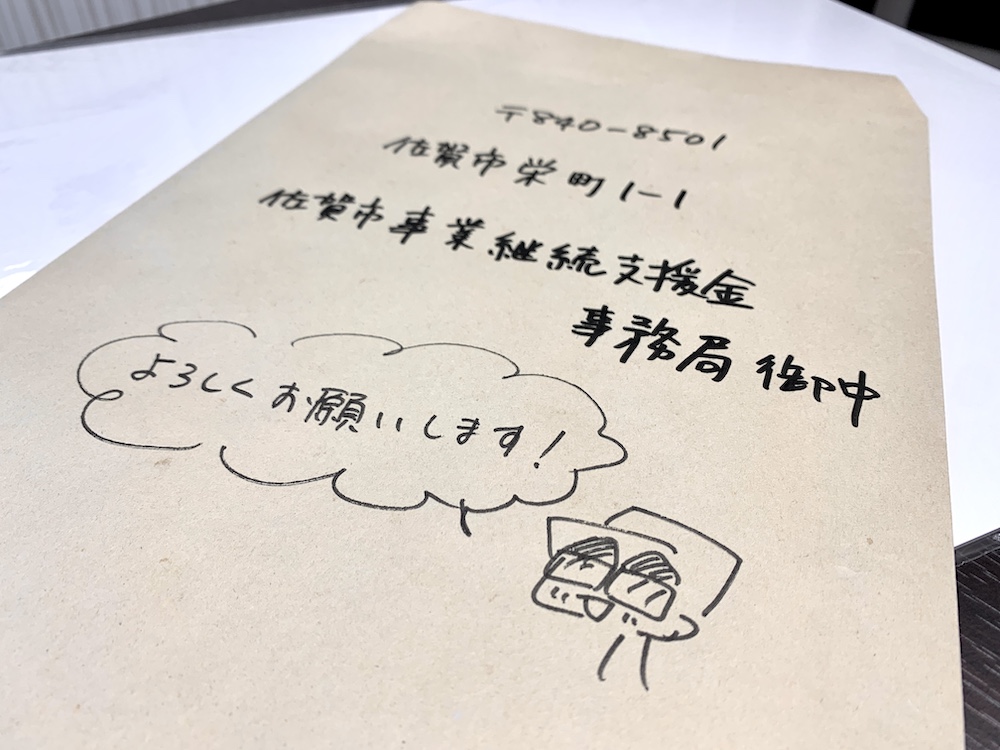 〒840-8501
佐賀市栄町1-1
佐賀市事業継続支援金
事務局 御中
よろしくお願いします！